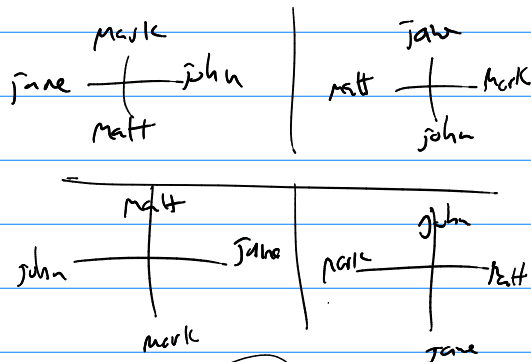 Mark
jane john
Matt
jane
Matt Mark
john
Matt
john jane
Mark
john
Mark Matt
jane